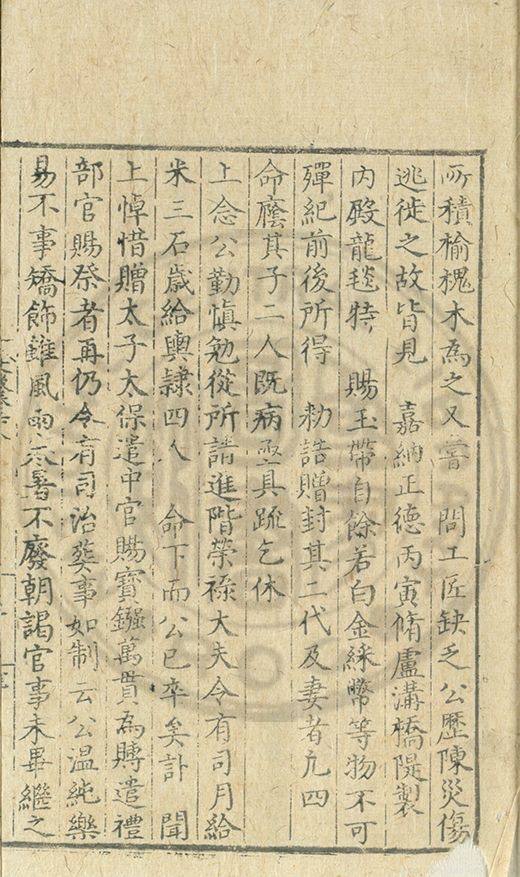 所積榆槐木為之又嘗　問工匠缺乏公歷陳災傷
逃徙之故皆見　嘉納正德丙寅脩盧溝橋隄製
內殿龍毯特　賜玉帶自餘若白金綵幣等物不可
殫紀前後所得　勑誥贈封其二代及妻者凡四
命廕其子二人既病亟具疏乞休
上念公勤慎勉從所請進階榮祿大夫令有司月給
米三石歲給輿隸四人　命下而公已卒矣訃　聞
上悼惜贈太子太保遣中官賜寶鏹萬貫為賻遣禮
部官賜祭者再仍令有司治葬事如制云公溫純樂
易不事矯飾雖風雨寒暑不廢朝謁官事未畢繼之